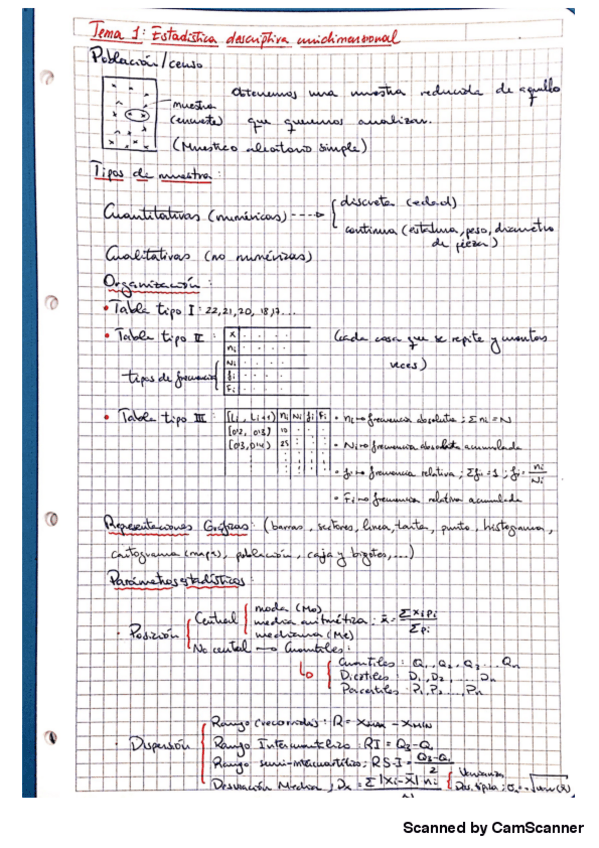 Tema 1: Estadística descriptiva unidimensional
Población/censo
obtenemos una muestra reducida de aquello
muestra
(encuesta) que queremos analizar.
(Muestreo aleatorio simple)
Tipos de muestra:
Cuantitativas (numéricas) ----> discreta (edad)
continua (estatura, peso, diámetro
de pieza)
Cualitativas (no numéricas)
Organización:
• Tabla tipo I: 22, 21, 20, 18, 17...
• Tabla tipo II: x (cada cosa que se repite y cuantas
ni veces)
tipos de frecuencia Ni
fi
Fi
• Tabla tipo III: [Li, Li+1) ni Ni fi Fi • ni → frecuencia absoluta; Σni = N
[0'2, 0'3) 10
[0'3, 0'4) 25 • Ni → frecuencia absoluta acumulada
• fi → frecuencia relativa; Σfi = 1; fi = ni/Ni
• Fi → frecuencia relativa acumulada
Representaciones Gráficas: (barras, sectores, linea, tarta, punto, histograma,
cartograma (mapa), población, caja y bigotes,...)
Parámetros estadísticos:
• Posición Central moda (Mo)
media aritmética: x̄ = Σxipi/Σpi
mediana (Me)
No central → Cuantiles:
Cuartiles: Q1, Q2, Q3 ... Qn
Deciles: D1, D2, ... Dn
Percentiles: P1, P2, ..., Pn
• Dispersión Rango (recorrido): R = xMAX - xMIN
Rango Intercuartílico: RI = Q3-Q1
Rango semi-intercuartílico: RSI = Q3-Q1/2
Desviación Media; Dx = Σ|xi-x̄|ni Varianza
Des. típica; σ =
Scanned by CamScanner